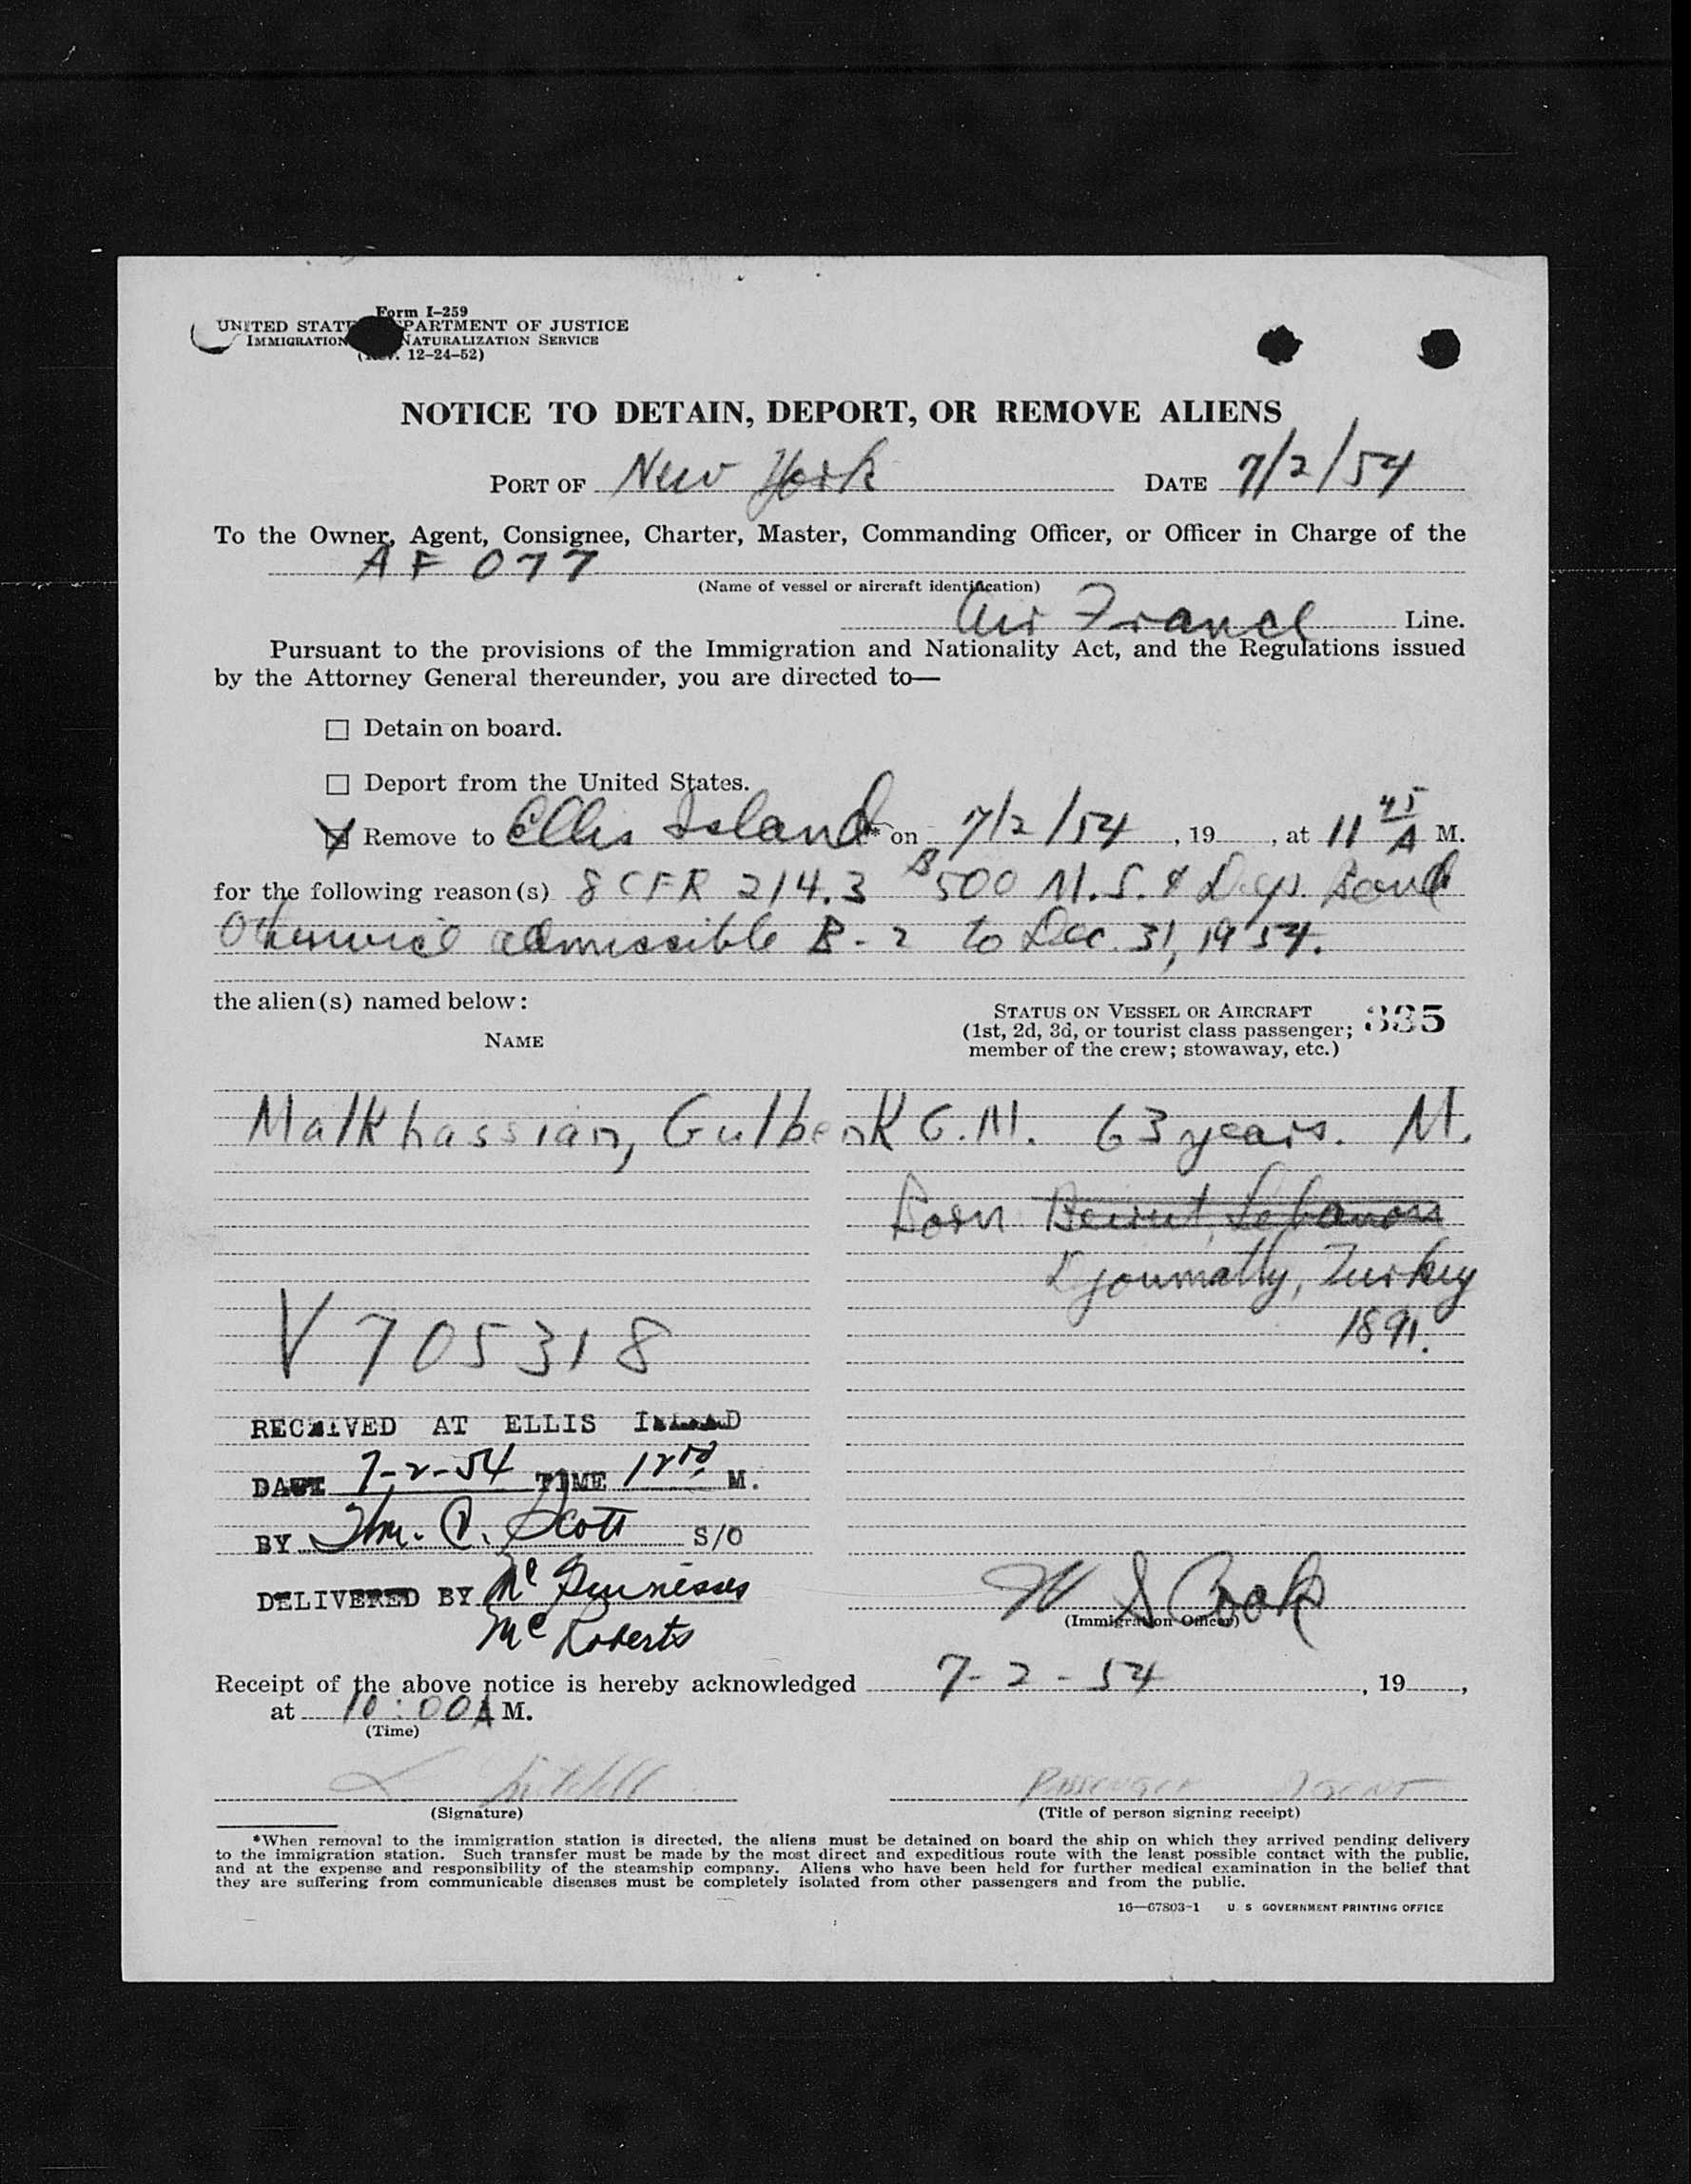 Form I-259
UNITED STATES DEPARTMENT OF JUSTICE
IMMIGRATION NATURALIZATION SERVICE
(Rev. 12-24-52)
NOTICE TO DETAIN, DEPORT, OR REMOVE ALIENS
PORT OF New York DATE 7/2/54
To the Owner, Agent, Consignee, Charter, Master, Commanding Officer, or Officer in Charge of the
AF 077
(Name of vessel or aircraft identification)
Air France Line.
Pursuant to the provisions of the Immigration and Nationality Act, and the Regulations issued
by the Attorney General thereunder, you are directed to—
☐ Detain on board.
☐ Deport from the United States.
☒ Remove to Ellis Island* on 7/2/54, 19, at 11 45 A M.
for the following reason(s) 8 CFR 214.3 $500 M.S. & Dep. Bond
Otherwise admissible B-2 to Dec. 31, 1954.
the alien(s) named below:
STATUS ON VESSEL OR AIRCRAFT
(1st, 2d, 3d, or tourist class passenger;
member of the crew; stowaway, etc.)
335
NAME
Malkhassian, Gulbenk G.M. 63 years. M.
Born Beirut, Lebanon
Djoumatly, Turkey
1891.
V 705318
RECEIVED AT ELLIS ISLAND
DATE 7-2-54 TIME 12 M.
BY Thm. Scott S/O
DELIVERED BY McGuinesses
McRoberts
W S Cook
(Immigration Officer)
Receipt of the above notice is hereby acknowledged 7-2-54, 19,
at 10:00 A M.
(Time)
Passenger Agent
(Signature)
(Title of person signing receipt)
*When removal to the immigration station is directed, the aliens must be detained on board the ship on which they arrived pending delivery
to the immigration station. Such transfer must be made by the most direct and expeditious route with the least possible contact with the public,
and at the expense and responsibility of the steamship company. Aliens who have been held for further medical examination in the belief that
they are suffering from communicable diseases must be completely isolated from other passengers and from the public.
16—67803-1 U. S. GOVERNMENT PRINTING OFFICE